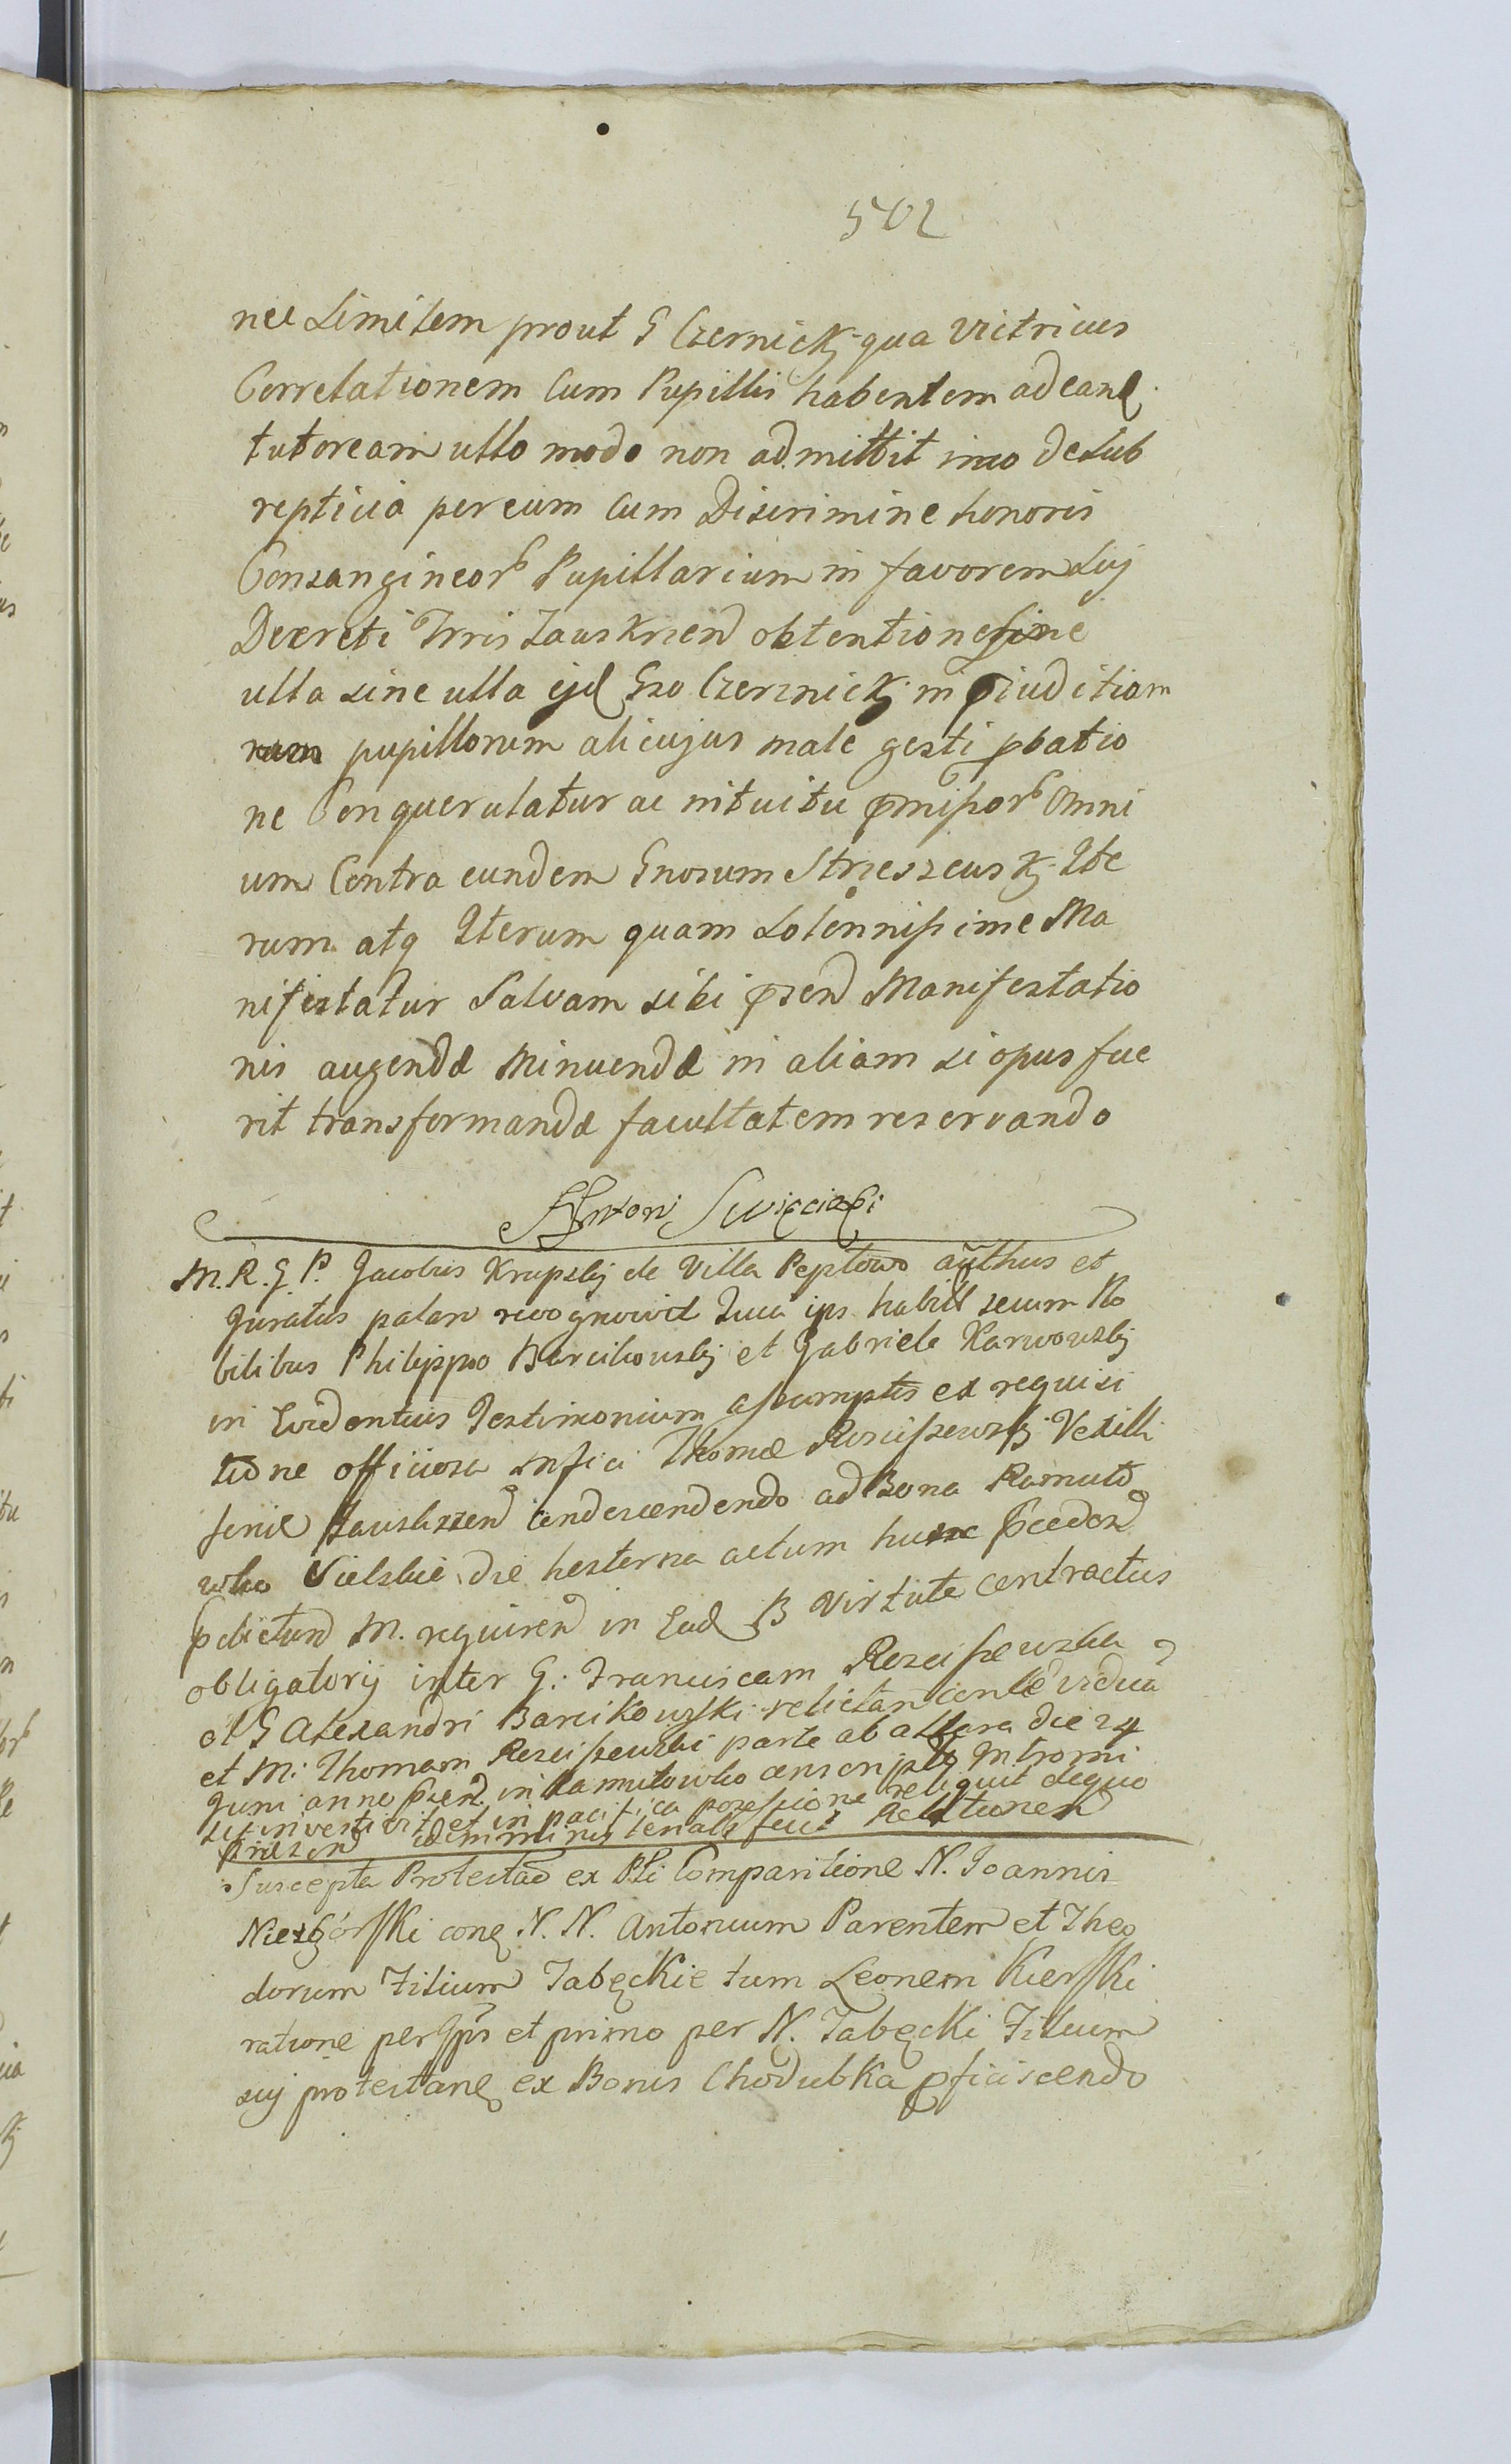 502
nec Limitem prout G Czernickj qua vitricus
Correlationem Cum Pupillis habentem ad eand
tutoream ullo modo non admittit imo de sub
repticia per eum Cum Discrimine honoris
Consangineor Pupillarium in favorem Suj
Decreti Trris Zauskrzen obtentione sine
ulla sine ulla ejd Gso Czerznickj in pjuditiam
rum pupillorum alicujus male gesti pbatio
ne Conquerulatur ac intuitu pmissor Omni
um Contra eundem Gnosum Strzeszeuskj Ite
rum atq Iterum quam Solennissime Ma
nifestatur Salvam sibi psen Manifestatio
nis augendæ Minuendæ in aliam si opus fue
rit transformandæ facultatem reservando
Antoni Swięcicki
M. R. G. P. Jacobus Krupskj de Villa Peplowo authus et
Juratus palam recognovit Quia ips habitt secum No
bilibus Philippo Barcikowskj et Gabriele Karwowskj
in Evidentius Testimonium assumptis ex requisi
tione officiosa Mfici Thomæ Rosciszewskj Vexilli
feriæ Zauskrzen condescendendo ad Bona Ramuto
wko Vielskie die hesterna actum hunc pceden
pdictum M. requiren in Ead B virtute contractus
obligatorij inter G: Franciscam Rosciszewska
et G Alexandri Barcikowski relictam conle vidua
et M: Thomam Rosciszewski parte ab altera die 24
Juni anno psen. in Ramutowko conscripto Intromi
sit investivit et in pacifica possessione reliquit de quo
præsen idem ministerialis fecit Relationem
Suscepta Protestao ex Pli Comparitione N. Joannis
Niezgórski conq N. N. Antonium Parentem et Theo
dorum Filium Jabęckie tum Leonem Kierski
ratione per Ipis et primo per N. Jabęcki Filium
suj protestanq ex Bonis Chodubka pficiscendo